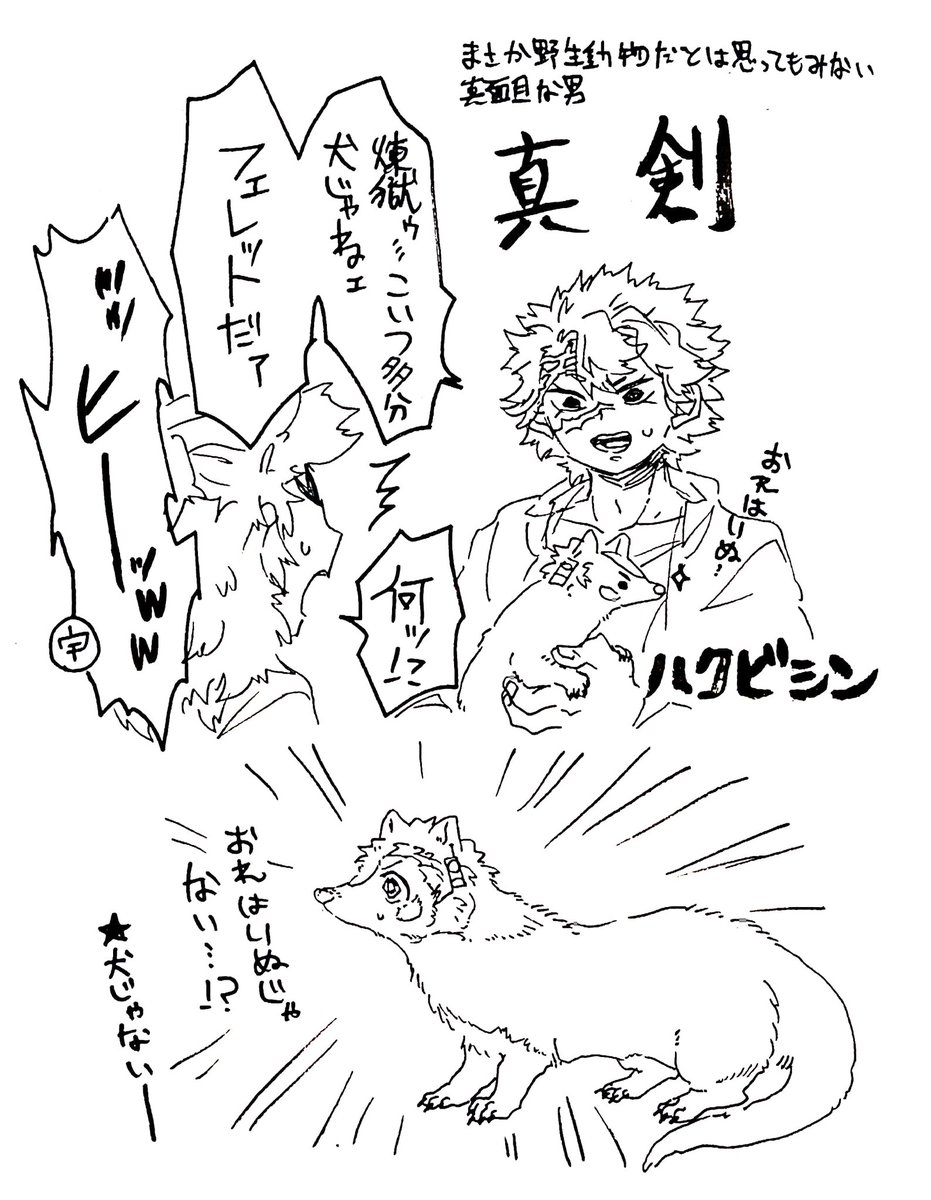 まさか野生動物だとは思ってもみない
真面目な男
真剣
煉獄ゥ…こいつ多分
犬じゃねェ
フェレットだァ
おれはいぬ!
ハクビシン
何ッ!?
ヒーーッww
宇
おれはいぬじゃ
ない…!?
★犬じゃないー